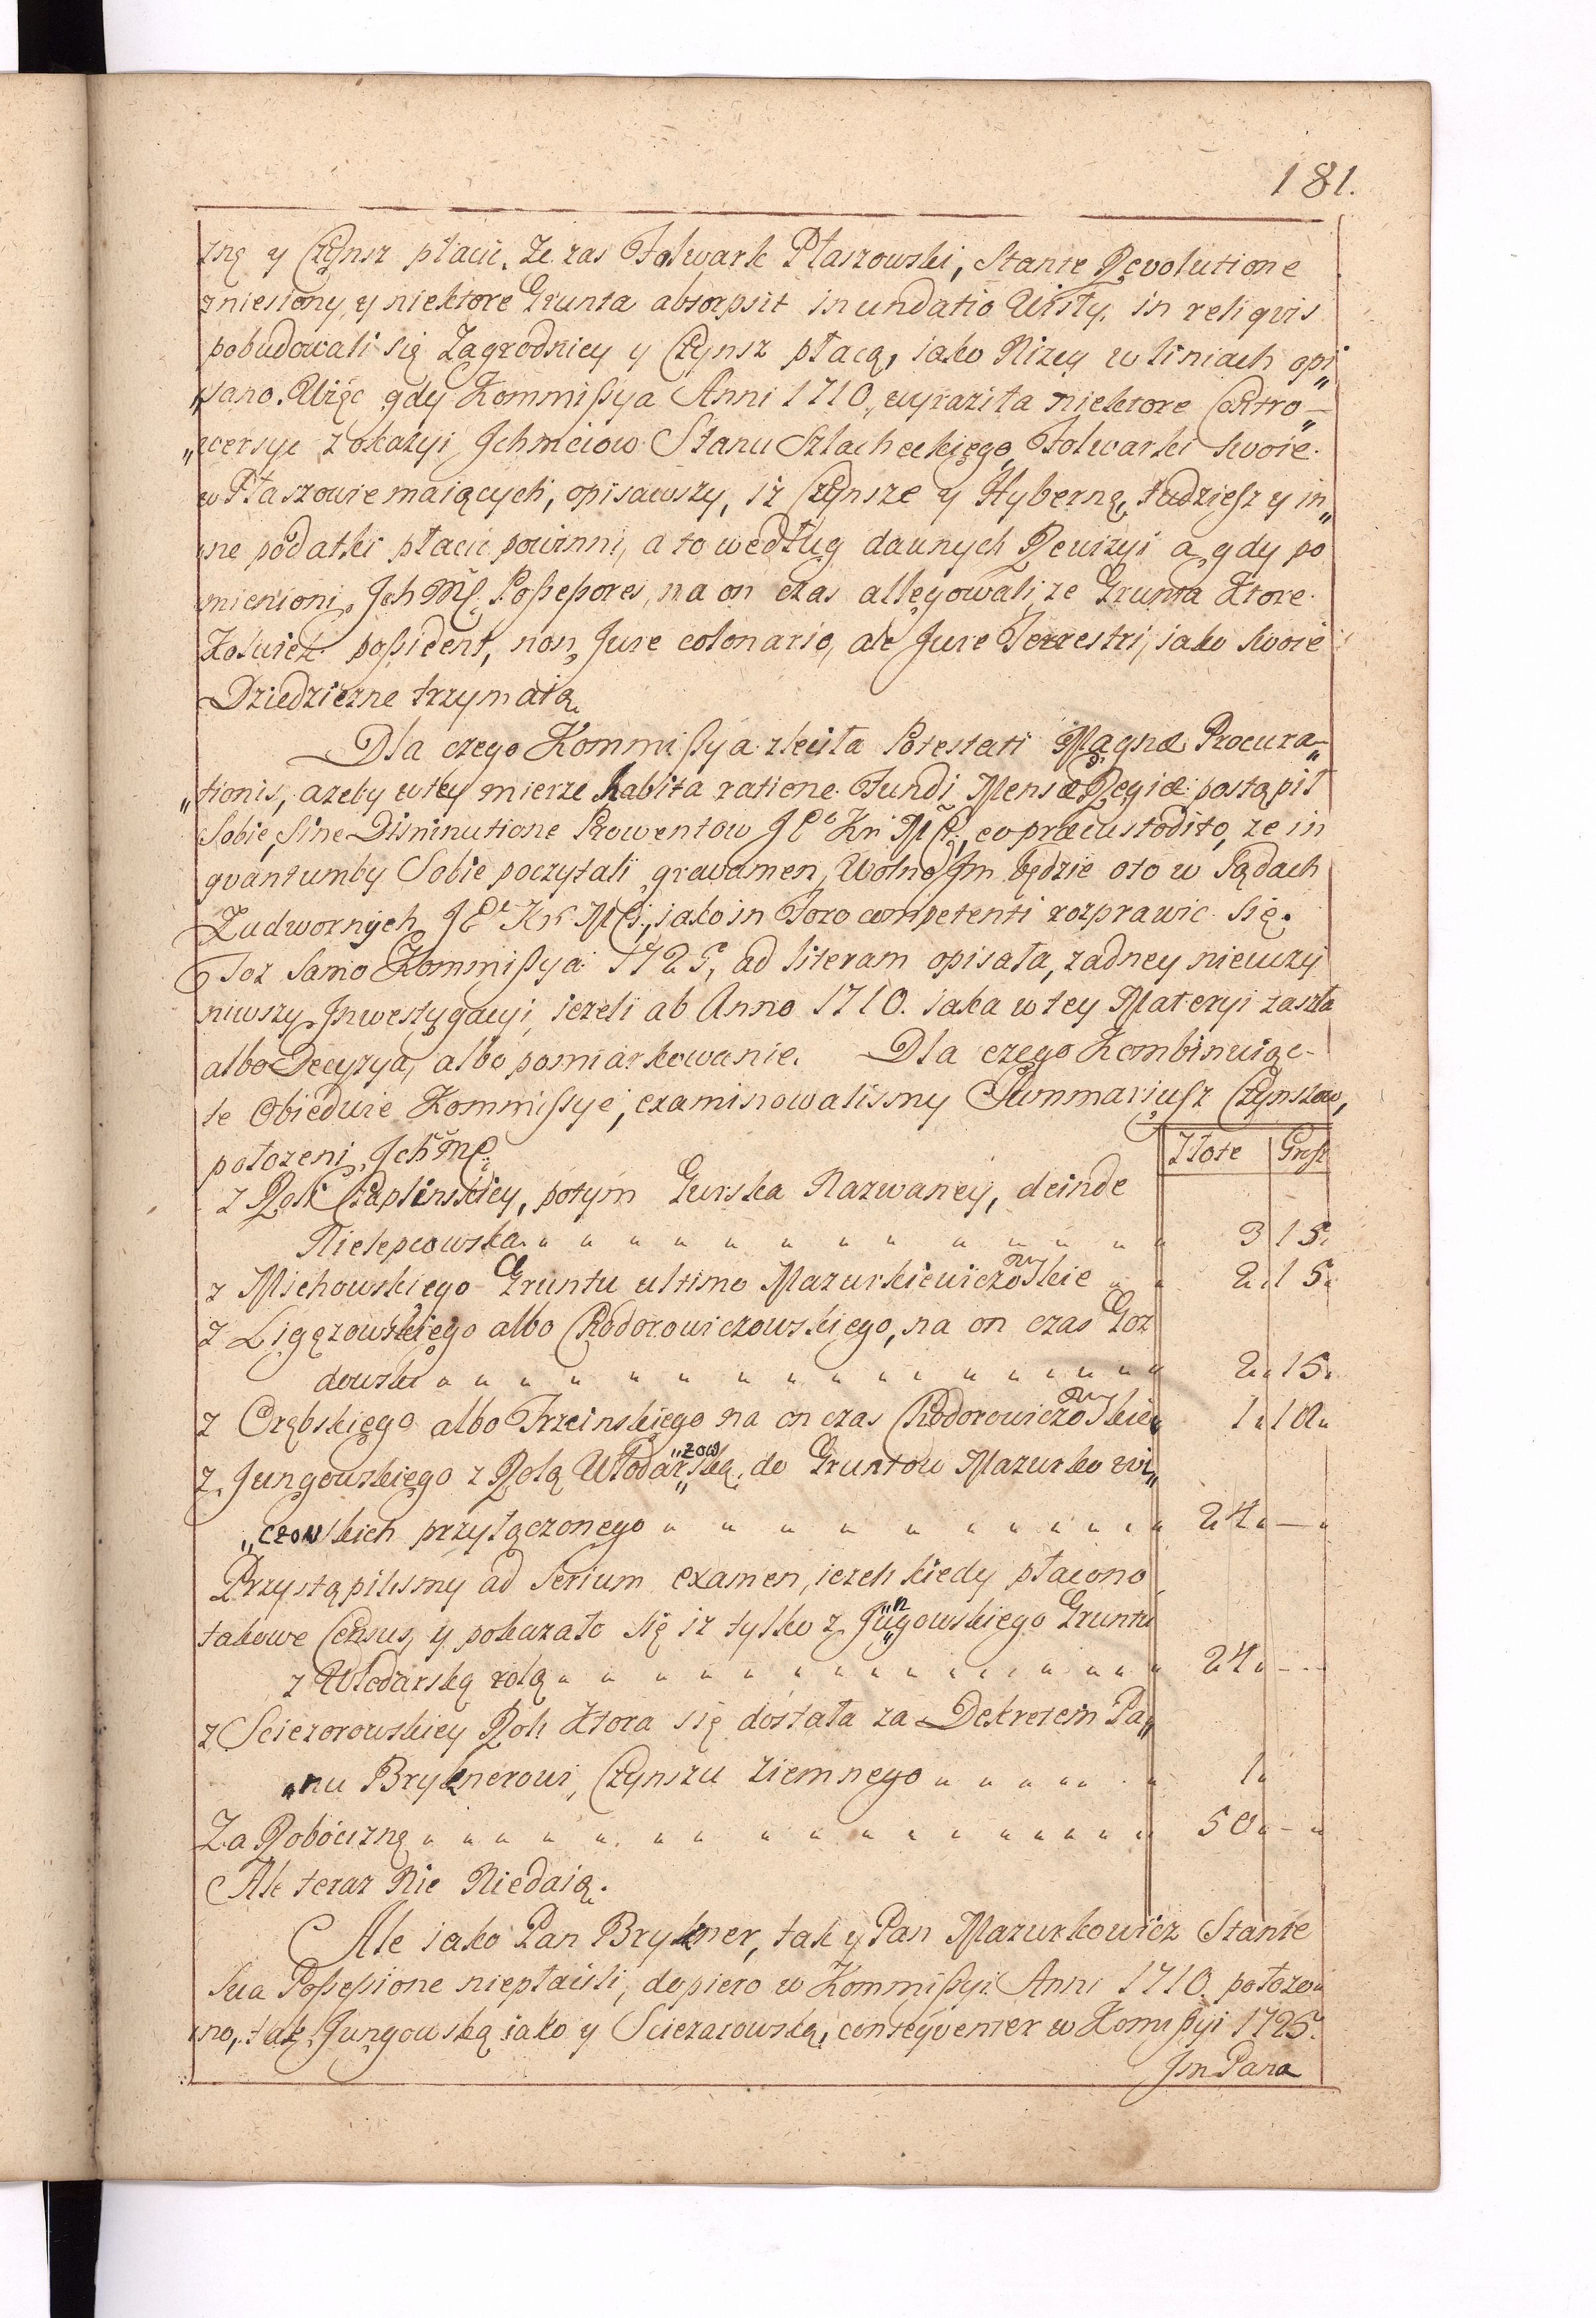 181.
zną y Czynsz płacić. Ze zas Folwark Płaszowski, Stante Revolutione
zniesiony, y niektore Grunta absorpsit inundatio Wisły, in reliqvis
pobudowali się Zagrodnicy y Czynsz płacą, iako Nizey w liniach opi„
„sano. Więc gdy Kommißya Anni 1710. wyraziła niektore Contro„
„wersye z okazyi Jchmciow Stanu Szlacheckiego, Folwarki swoie
w Płaszowie maiących, opisawszy, iz Czynsze y Hyberną, tudziesz y in„
„ne podatki płacić powinni, a to według dawnych Rewizyi a gdy po
mienioni Jch Mść Poßeßores, na on czas allegowali, ze Grunta Ktore
Kolwiek poßident, non Jure colonario, ale Jure Terrestri, iako swoie
Dziedziczne trzymaią.
Dla czego Kommißya zleciła Potestati Magnæ Procura„
„tionis, azeby w tey mierze habita ratione Fundi Mensæ Regiæ postąpił
Sobie, Sine Diminutione Prowentow JEo Kr Mći, eo præcustodito, ze in
qvantumby Sobie poczytali gravamen, Wolno Jm będzie oto w Sądach
Zadwornych JEo Kr Mći, iako in Foro competenti rozprawic się.
Toz Samo Kommißya 1725, ad literam opisała, zadney nieuczy
niwszy Jnwestygacyi, iezeli ab Anno 1710. iaka w tey Materyi zaszła
albo Decyzya, albo pomiarkowanie. Dla czego Kombinuiąc
te Obiedwie Kommißye, examinowalismy Summariusz Czynszow,
połozeni Jch Mć
Złote Grosz
z Roli Czaplinskiey, potym Gurska Nazwaney, deinde
Nielepcowska „ „ „ „ „ „ „ „ „ „ „ „ 3 15.
z Michowskiego Gruntu ultimo Mazurkiewiczowskie „ „ 2 „ 15 „
z Ligęzowskiego albo Chodorowiczowskiego, na on czas Goz
dowski „ „ „ „ „ „ „ „ „ „ „ „ „ „ 2 „ 15 „
z Orębskiego albo Trzcinskiego na on czas Chodorowiczowskie „ 1 „ 10 „
z Jungowskiego z Rolą Włodarzowską, do Gruntow Mazurkowi„
„czowskich przyłączonego „ „ „ „ „ „ „ „ „ „ 24 „ — „
Przystąpilismy ad Serium examen, iezeli kiedy płacono
takowe Census, y pokazało się iz tylko z Jungowskiego Gruntu
z Włodarską rolą „ „ „ „ „ „ „ „ „ „ „ „ „ 24 „ —
z Sciezorowskiey Roli Ktora się dostała za Dekretem Pa„
„nu Bryknerowi, Czynszu ziemnego „ „ „ „ „ „ 1 „
Za Robociznę „ „ „ „ „ „ „ „ „ „ „ „ „ „ 50 „ — „
Ale teraz Nic Niedaią.
Ale iako Pan Brykner, tak y Pan Mazurkowicz Stante
Sua Poßeßione niepłacili, dopiero w Kommißyi Anni 1710. połozo„
„no, tak Jungowską iako y Sciezarowską, conseqventer w Komißyi 1725.
Jm Pana